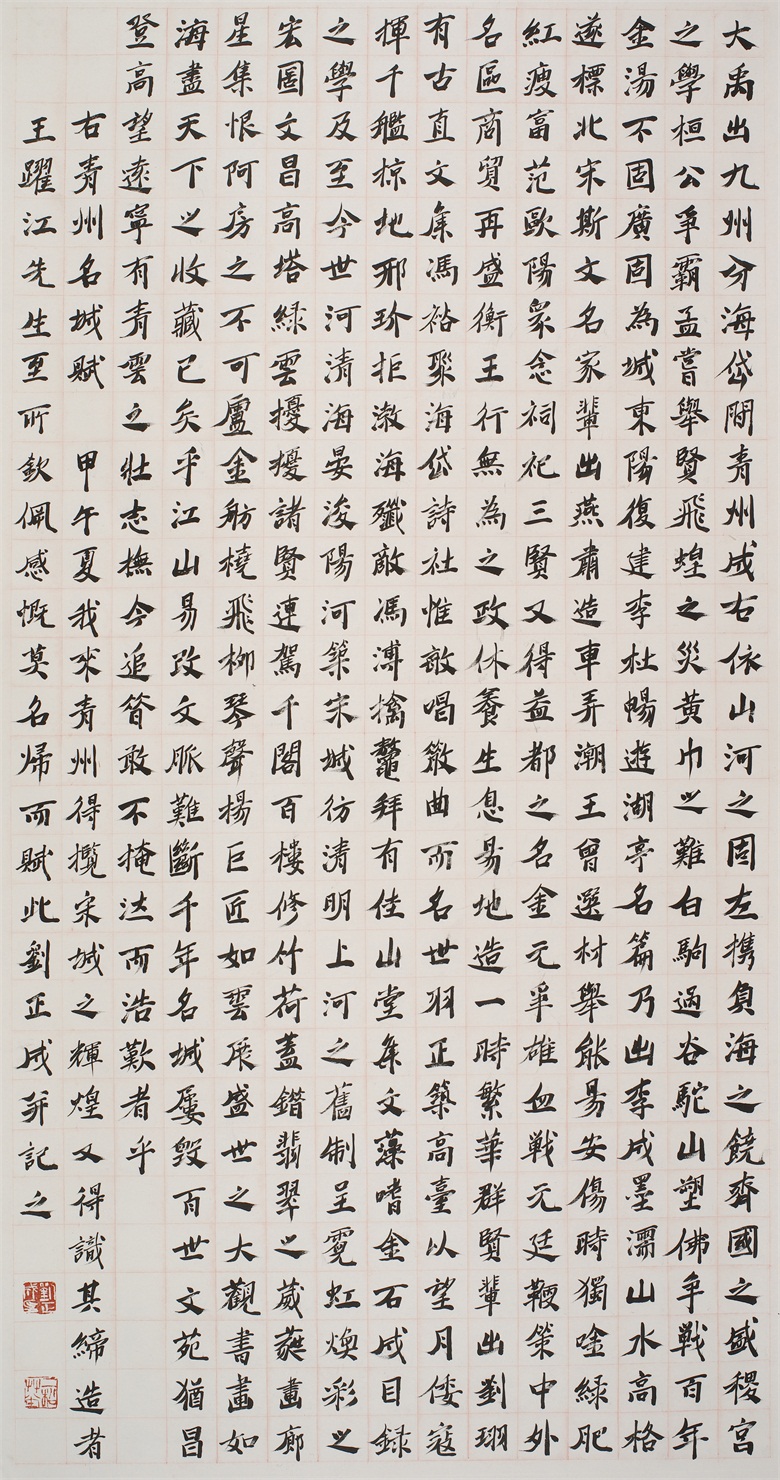 大禹出九州分海岱開青州成右依山河之固左携負海之饒齊國之盛稷宮
之學桓公爭霸孟嘗舉賢飛蝗之災黃巾之難白駒過谷駝山塑佛爭戰百年
金湯不固廣固為城東陽復建李杜暢遊湖亭名篇乃出李成墨濡山水高格
遂標北宋斯文名家輩出燕肅造車弄潮王曾選材舉能易安傷時獨唫綠肥
紅瘦富范歐陽眾念祠祀三賢又得益都之名金元爭雄血戰元廷鞭策中外
名區商貿再盛衡王行無為之政休養生息易地造一時繁華群賢輩出劉珝
有古直文集馮裕聚海岱詩社惟敏唱散曲而名世羽正築高臺以望月倭寇
揮千艦掠地邢玠拒激海殲敵馮溥擒鼇拜有佳山堂集文藻嗜金石成目録
之學及至今世河清海晏浚陽河築宋城彷清明上河之舊制呈霓虹煥彩之
宏圖文昌高塔綠雲擾擾諸賢連駕千閣百樓修竹荷蓋錯翡翠之葳蕤畫廊
星集恨阿房之不可盧金舫橈飛柳琴聲揚巨匠如雲展盛世之大觀書畫如
海盡天下之收藏已矣乎江山易改文脈難斷千年名城屢毀百世文苑猶昌
登高望遠寧有青雲之壯志撫今追昔敢不掩泣而浩歎者乎
右青州名城賦 甲午夏我來青州得攬宋城之輝煌又得識其締造者
王躍江先生至所欽佩感慨莫名歸而賦此劉正成并記之